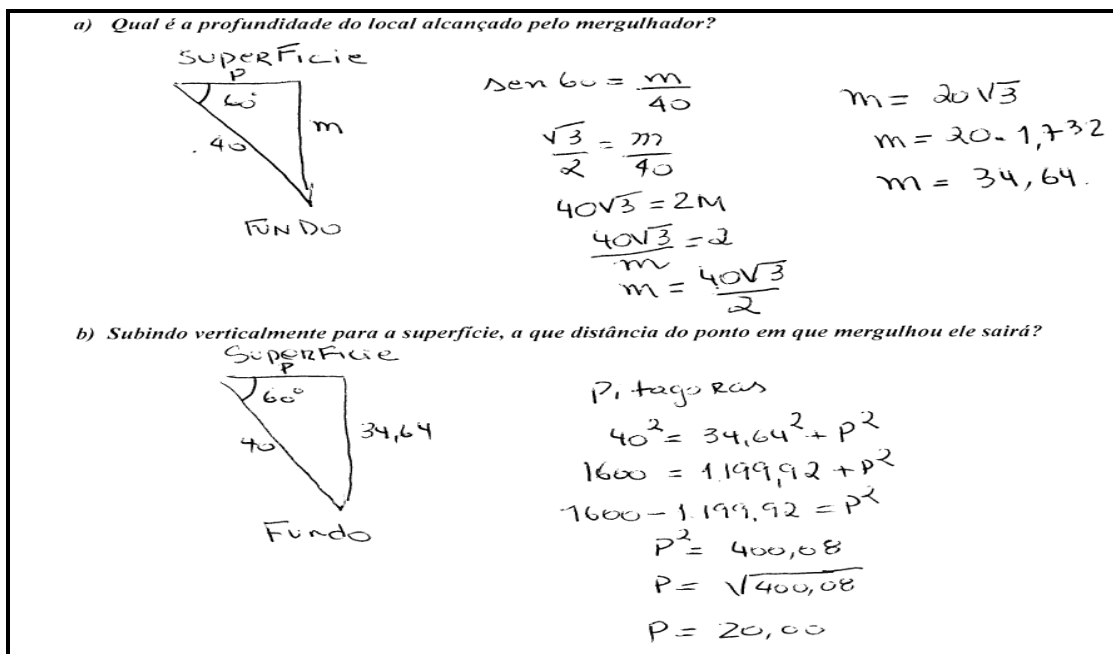 a) Qual é a profundidade do local alcançado pelo mergulhador?
SUPERFICIE
P
60°
m
40
FUNDO
sen 60 = m/40
√3/2 = m/40
40√3 = 2M
40√3/m = 2
m = 40√3/2
m = 20√3
m = 20. 1,732
m = 34,64.
b) Subindo verticalmente para a superfície, a que distância do ponto em que mergulhou ele sairá?
SUPERFICIE
P
60°
40
34,64
Fundo
Pitagoras
40² = 34,64² + P²
1600 = 1.199,92 + P²
1600 - 1.199,92 = P²
P² = 400,08
P = √400,08
P = 20,00